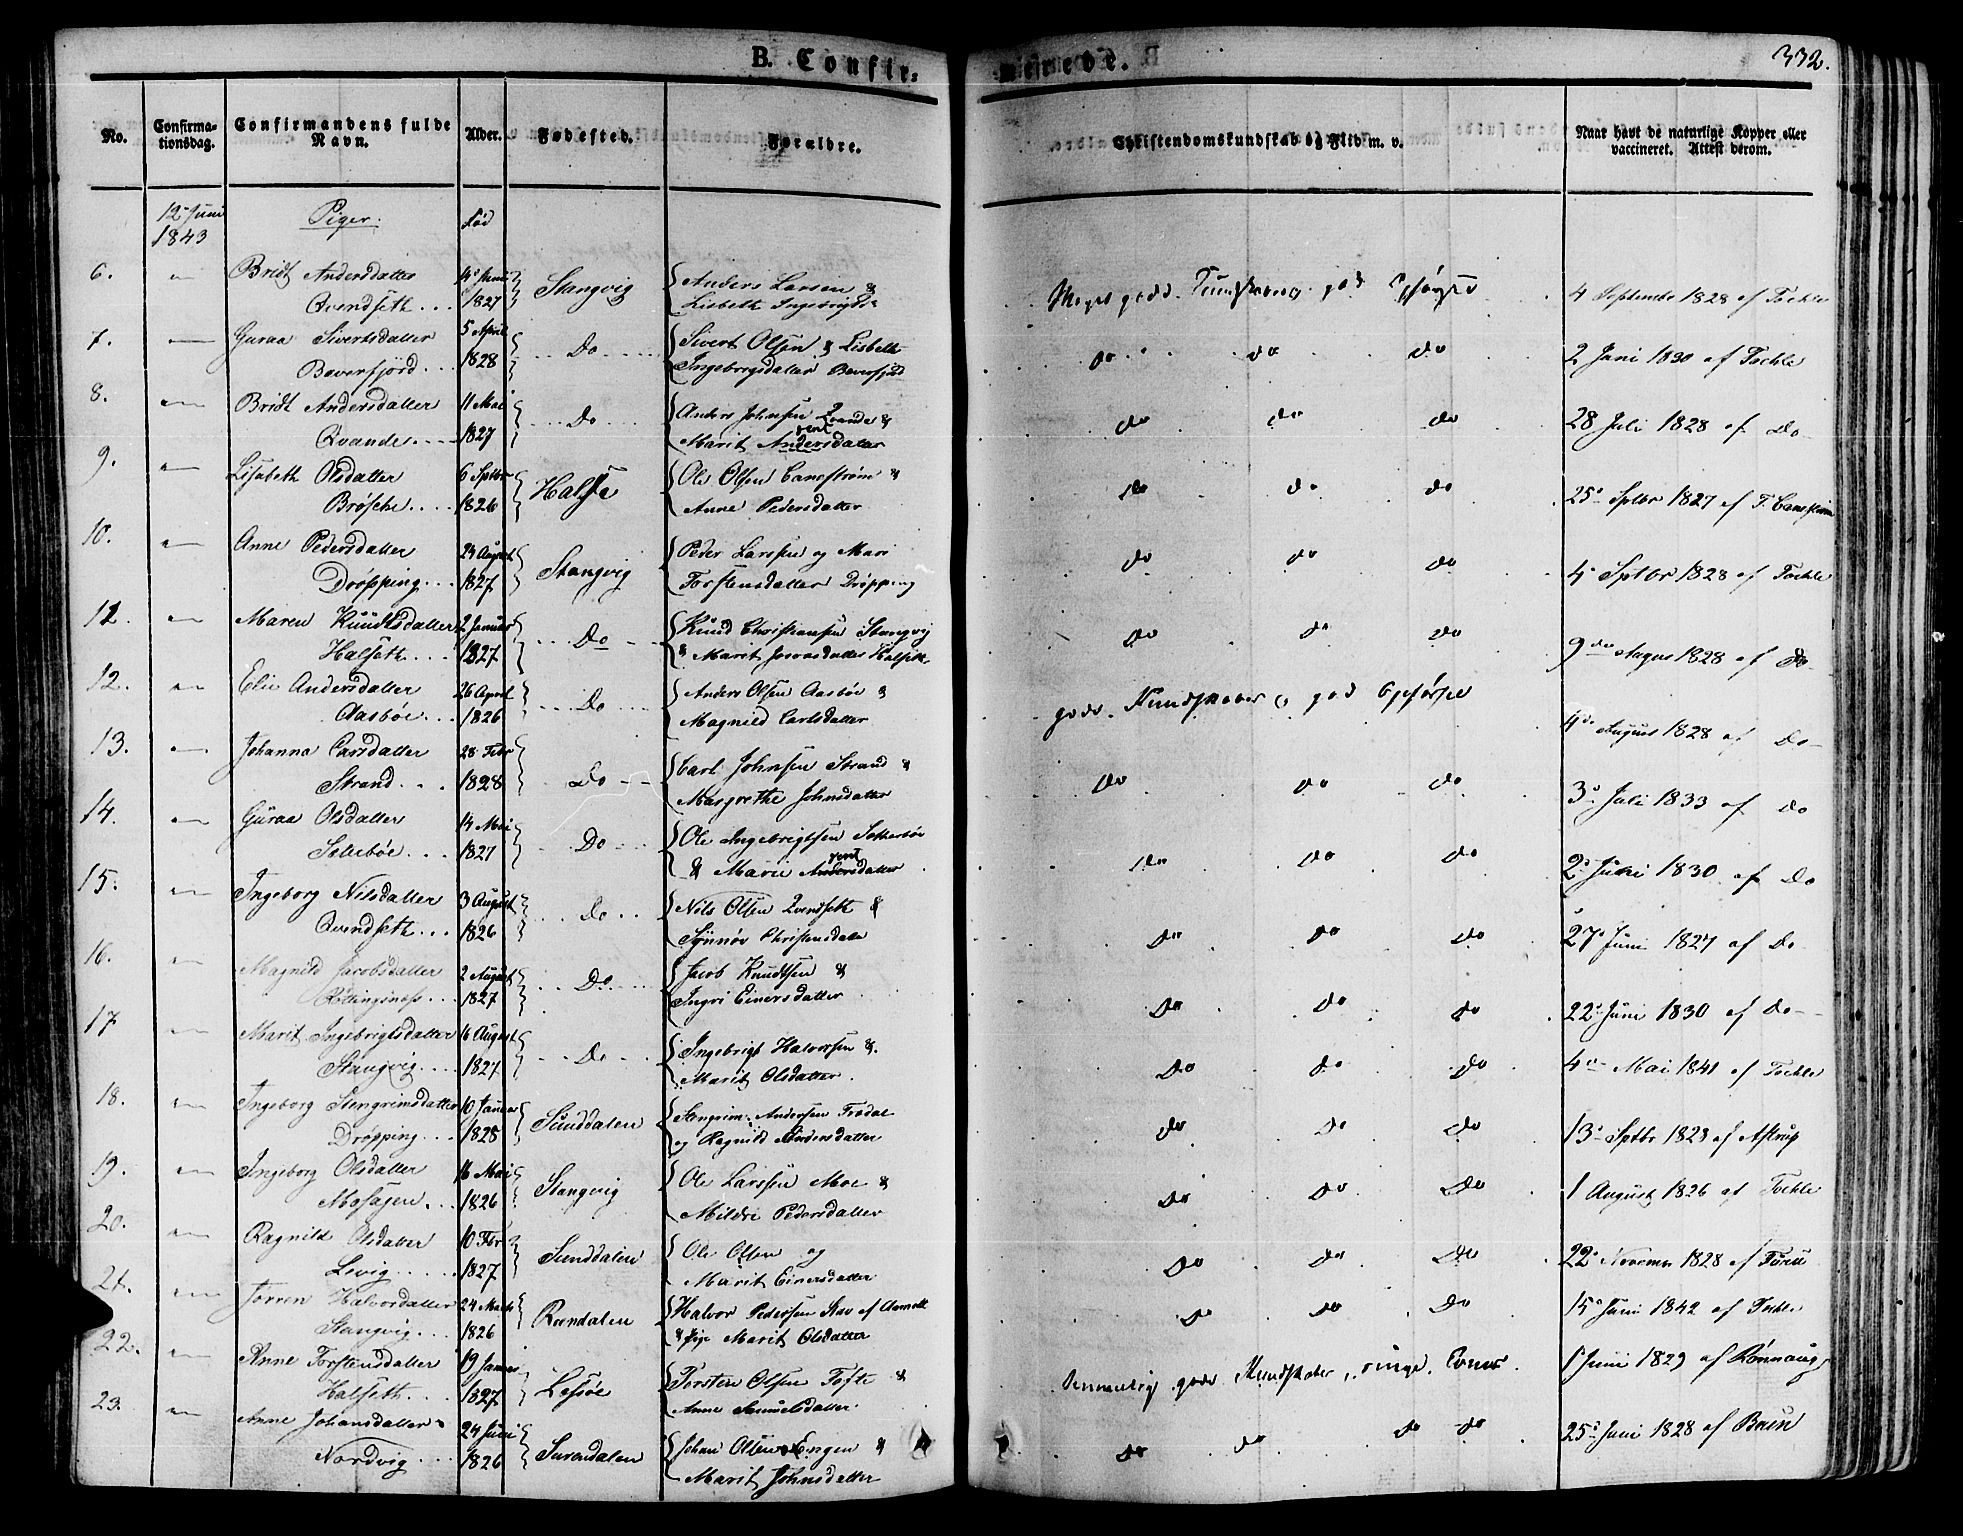 B. Confirmerede.
332.
No. Confirmationsdag. Confirmandens fulde Navn. Alder. Fødested. Forældre. Christendomskundskab og Flid m. v. Naar havt de naturlige Kopper eller vaccineret. Attest derom.
12 Juni 1843 Piger. Fød
6. Bridt Andersdatter 4 Juni Anders Larsen &
Qvendseth 1827 Stangvig Lisbeth Meget gode god 4 Septembr 1828 af Tochle
7. Guraa Sivertsdatter 5 April Sivert Olsen & Lisbeth
Bøverfjord 1828 Do Ingeborgsdatter Bøverfjord do do do 2 Juni 1830 af Tochle
8. Bridt Andersdatter 11 Mai Anders Johnsen Qvande &
Qvande 1827 Do Marit Andersdatter do do do 28 Juli 1828 af Do
9. Lisabeth Olsdatter 6 Septbr Ole Olsen &
Brøsche 1826 Halse Anne Pedersdatter do do do 25 Sptbr 1827 af
10. Anne Pedersdatter August Peder Larsen og Mari
Drøpping 1827 Stangvig Torstensdatter Drøpping do do do 4 Sptbr 1828 af Tochle
11. Maren Knudtsdatter 2 Januar Knud Christiansen Stangvig
Halseth 1827 Do & Marit Halseth do do do 9 August 1828 af Do
12. Elie Andersdatter 26 April Anders Olsen Aasbøe &
Aasbøe 1826 Do Magnild Carlsdatter gode Kundskaber og god Opførsel 4 August 1828 af Do
13. Johanna Carsdatter 28 Febr Carl Johnsen Strand &
Strand 1828 Do Margrethe Johnsdatter Do do do 3 Juli 1833 af do
14. Guraa Olsdatter 14 Mai Ole Ingebrigtsen
Settebøe 1827 Do & Marie Andersdatter do do do 2 Juni 1830 af Do
15. Ingeborg Nilsdatter 3 August Nils Olsen Qvendseth &
Qvendseth 1826 Do Synnøv Christensdatter do do do 27 Juni 1827 af Do
16. Magnild Jacobsdatter 2 August Jacob Knudtsen &
1827 Do Ingri Einersdatter do do do 22 Juni 1830 af do
17 Marit Ingebrigtsdatter 16 August Ingebrigt Halvorsen &
Stangvig 1827 Do Marit Olsdatter Do do do 4 Mai 1841 af Tochle
18. Ingeborg Stengrimsdatter 10 Januar Stengrim Andersen
Drøpping 1828 Sunddalen og Ragnild Andersdatter do do do 13 Sptbr 1828 af Astrup
19. Ingeborg Olsdatter 16 Mai Ole Larsen Moe &
Mosagen 1826 Stangvig Mildri Pedersdatter do do do 1 August 1826 af Tochle
20. Ragnild Olsdatter 10 Febr Ole Olsen og
Levig 1827 Sunddalen Marit Einersdatter do do do 22 Novembr 1828 af
21. Jorren Halvorsdatter 24 Marts Halvor Pedersen af
Stangvig 1826 Rundalen & Pige Marit Olsdatter do do do 15 Juni 1842 af Tochle
22. Anne Torstensdatter 19 Januar Torsten Olsen Tofte &
Halseth 1827 Lessøe Anne Samuelsdatter gode Kundskaber, ringe 1 Juni 1829 af Rønnaug
23. Anne Johansdatter 24 Juni Johan Olsen Engen &
Nordvig 1826 Surendalen Marit Johnsdatter do do do do 25 Juni 1828 af Bruun